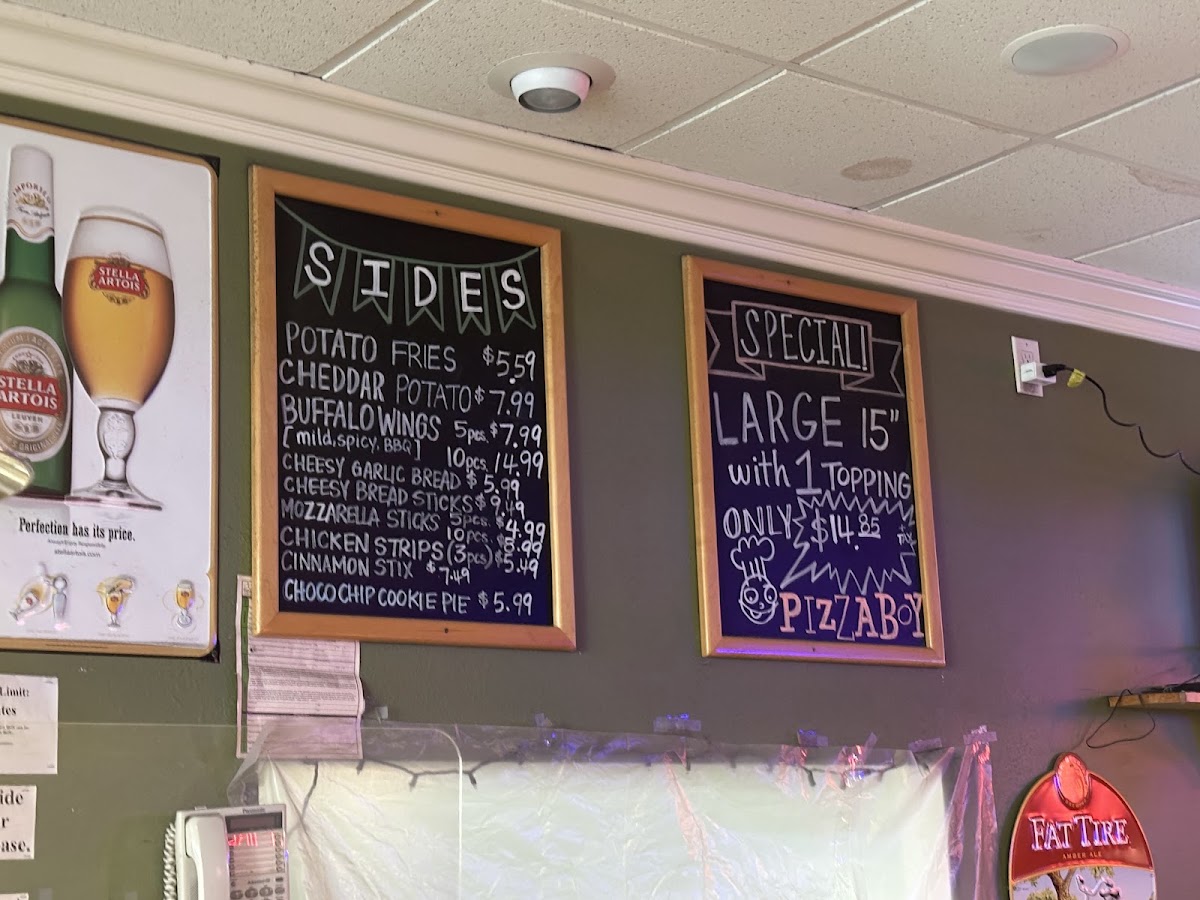 IMPORTED
STELLA
ARTOIS
STELLA
ARTOIS
LEUVEN
Perfection has its price.
stellaartois.com
SIDES
POTATO FRIES $5.59
CHEDDAR POTATO $7.99
BUFFALO WINGS 5pcs. $7.99
[mild, spicy, BBQ] 10pcs. 14.99
CHEESY GARLIC BREAD $5.99
CHEESY BREAD STICKS $9.49
MOZZARELLA STICKS 5pcs. $4.99
10pcs. $8.99
CHICKEN STRIPS (3pcs) $5.49
CINNAMON STIX $7.49
CHOCO CHIP COOKIE PIE $5.99
SPECIAL!
LARGE 15"
with 1 TOPPING
ONLY $14.85
PIZZABOY
Limit:
ase.
FAT TIRE
AMBER ALE